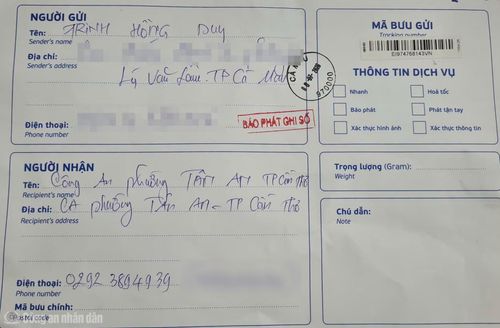 NGƯỜI GỬI
Tên: TRỊNH HỒNG Duy
Sender's name
Địa chỉ:
Sender's address
Lý Văn Lâm TP Cà Mau
Điện thoại:
Phone number
BÁO PHÁT GHI SỐ
970000
MÃ BƯU GỬI
Tracking number
EI974768143VN
THÔNG TIN DỊCH VỤ
Nhanh
Hoả tốc
Báo phát
Phát tận tay
Xác thực hình ảnh
Xác thực thông tin
NGƯỜI NHẬN
Tên: Công An phường TÂN AN TP Cần Thơ
Recipient's name
Địa chỉ: CA phường TÂN AN - TP Cần Thơ
Recipient's address
Điện thoại: 0292 3894939
Phone number
Mã bưu chính:
Postal code
Trọng lượng (Gram):
Weight
Chú dẫn:
Note
công an nhân dân